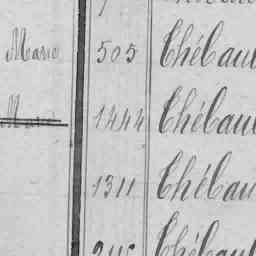 Marie 505 Thébau
1444 Thébau
1311 Thébau
Thébau